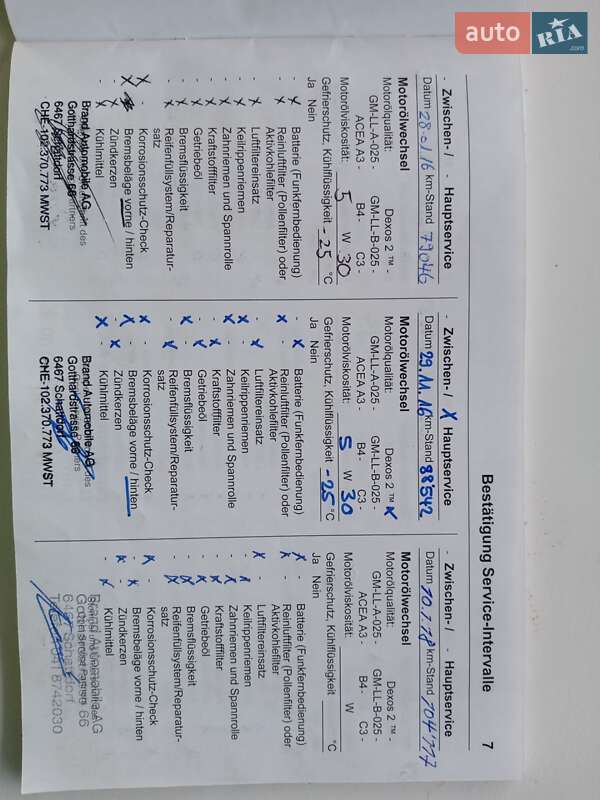 auto RIA .com
Bestätigung Service-Intervalle 7
- Zwischen- / - Hauptservice
Datum 28.01.16 km-Stand 79046
Motorölwechsel
Motorölqualität: Dexos 2 ™ -
GM-LL-A-025 - GM-LL-B-025 -
ACEA A3 - B4 - C3 -
Motorölviskosität: 5 W 30
Gefrierschutz, Kühlflüssigkeit -25 °C
Ja Nein
- x Batterie (Funkfernbedienung)
- x Reinluftfilter (Pollenfilter) oder
Aktivkohlefilter
- x Luftfiltereinsatz
- x Keilrippenriemen
- x Zahnriemen und Spannrolle
- x Kraftstofffilter
- x Getriebeöl
- x Bremsflüssigkeit
- x Reifenfüllsystem/Reparatur-
satz
x - Korrosionsschutz-Check
x - Bremsbeläge vorne / hinten
Zündkerzen
- x Kühlmittel
Brand Automobile AG
Gotthardstrasse 66
6467 Schattdorf
CHE-102.370.773 MWST
- Zwischen- / x Hauptservice
Datum 29.11.16 km-Stand 88'542
Motorölwechsel
Motorölqualität: Dexos 2 ™ x
GM-LL-A-025 - GM-LL-B-025 -
ACEA A3 - B4 - C3 -
Motorölviskosität: 5 W 30
Gefrierschutz, Kühlflüssigkeit -25 °C
Ja Nein
- x Batterie (Funkfernbedienung)
x - Reinluftfilter (Pollenfilter) oder
Aktivkohlefilter
- x Luftfiltereinsatz
x - Keilrippenriemen
x - Zahnriemen und Spannrolle
- x Kraftstofffilter
- x Getriebeöl
x - Bremsflüssigkeit
- x Reifenfüllsystem/Reparatur-
satz
x - Korrosionsschutz-Check
x - Bremsbeläge vorne / hinten
- x Zündkerzen
x - Kühlmittel
Brand Automobile AG
Gotthardstrasse 66
6467 Schattdorf
CHE-102.370.773 MWST
- Zwischen- / - Hauptservice
Datum 10.1.18 km-Stand 104'777
Motorölwechsel
Motorölqualität: Dexos 2 ™ -
GM-LL-A-025 - GM-LL-B-025 -
ACEA A3 - B4 - C3 -
Motorölviskosität: W
Gefrierschutz, Kühlflüssigkeit °C
Ja Nein
Batterie (Funkfernbedienung)
Reinluftfilter (Pollenfilter) oder
Aktivkohlefilter
Luftfiltereinsatz
Keilrippenriemen
Zahnriemen und Spannrolle
Kraftstofffilter
Getriebeöl
Bremsflüssigkeit
Reifenfüllsystem/Reparatur-
satz
Korrosionsschutz-Check
Bremsbeläge vorne / hinten
Zündkerzen
Kühlmittel
Brand Automobile AG
66
Schattdorf
8742030